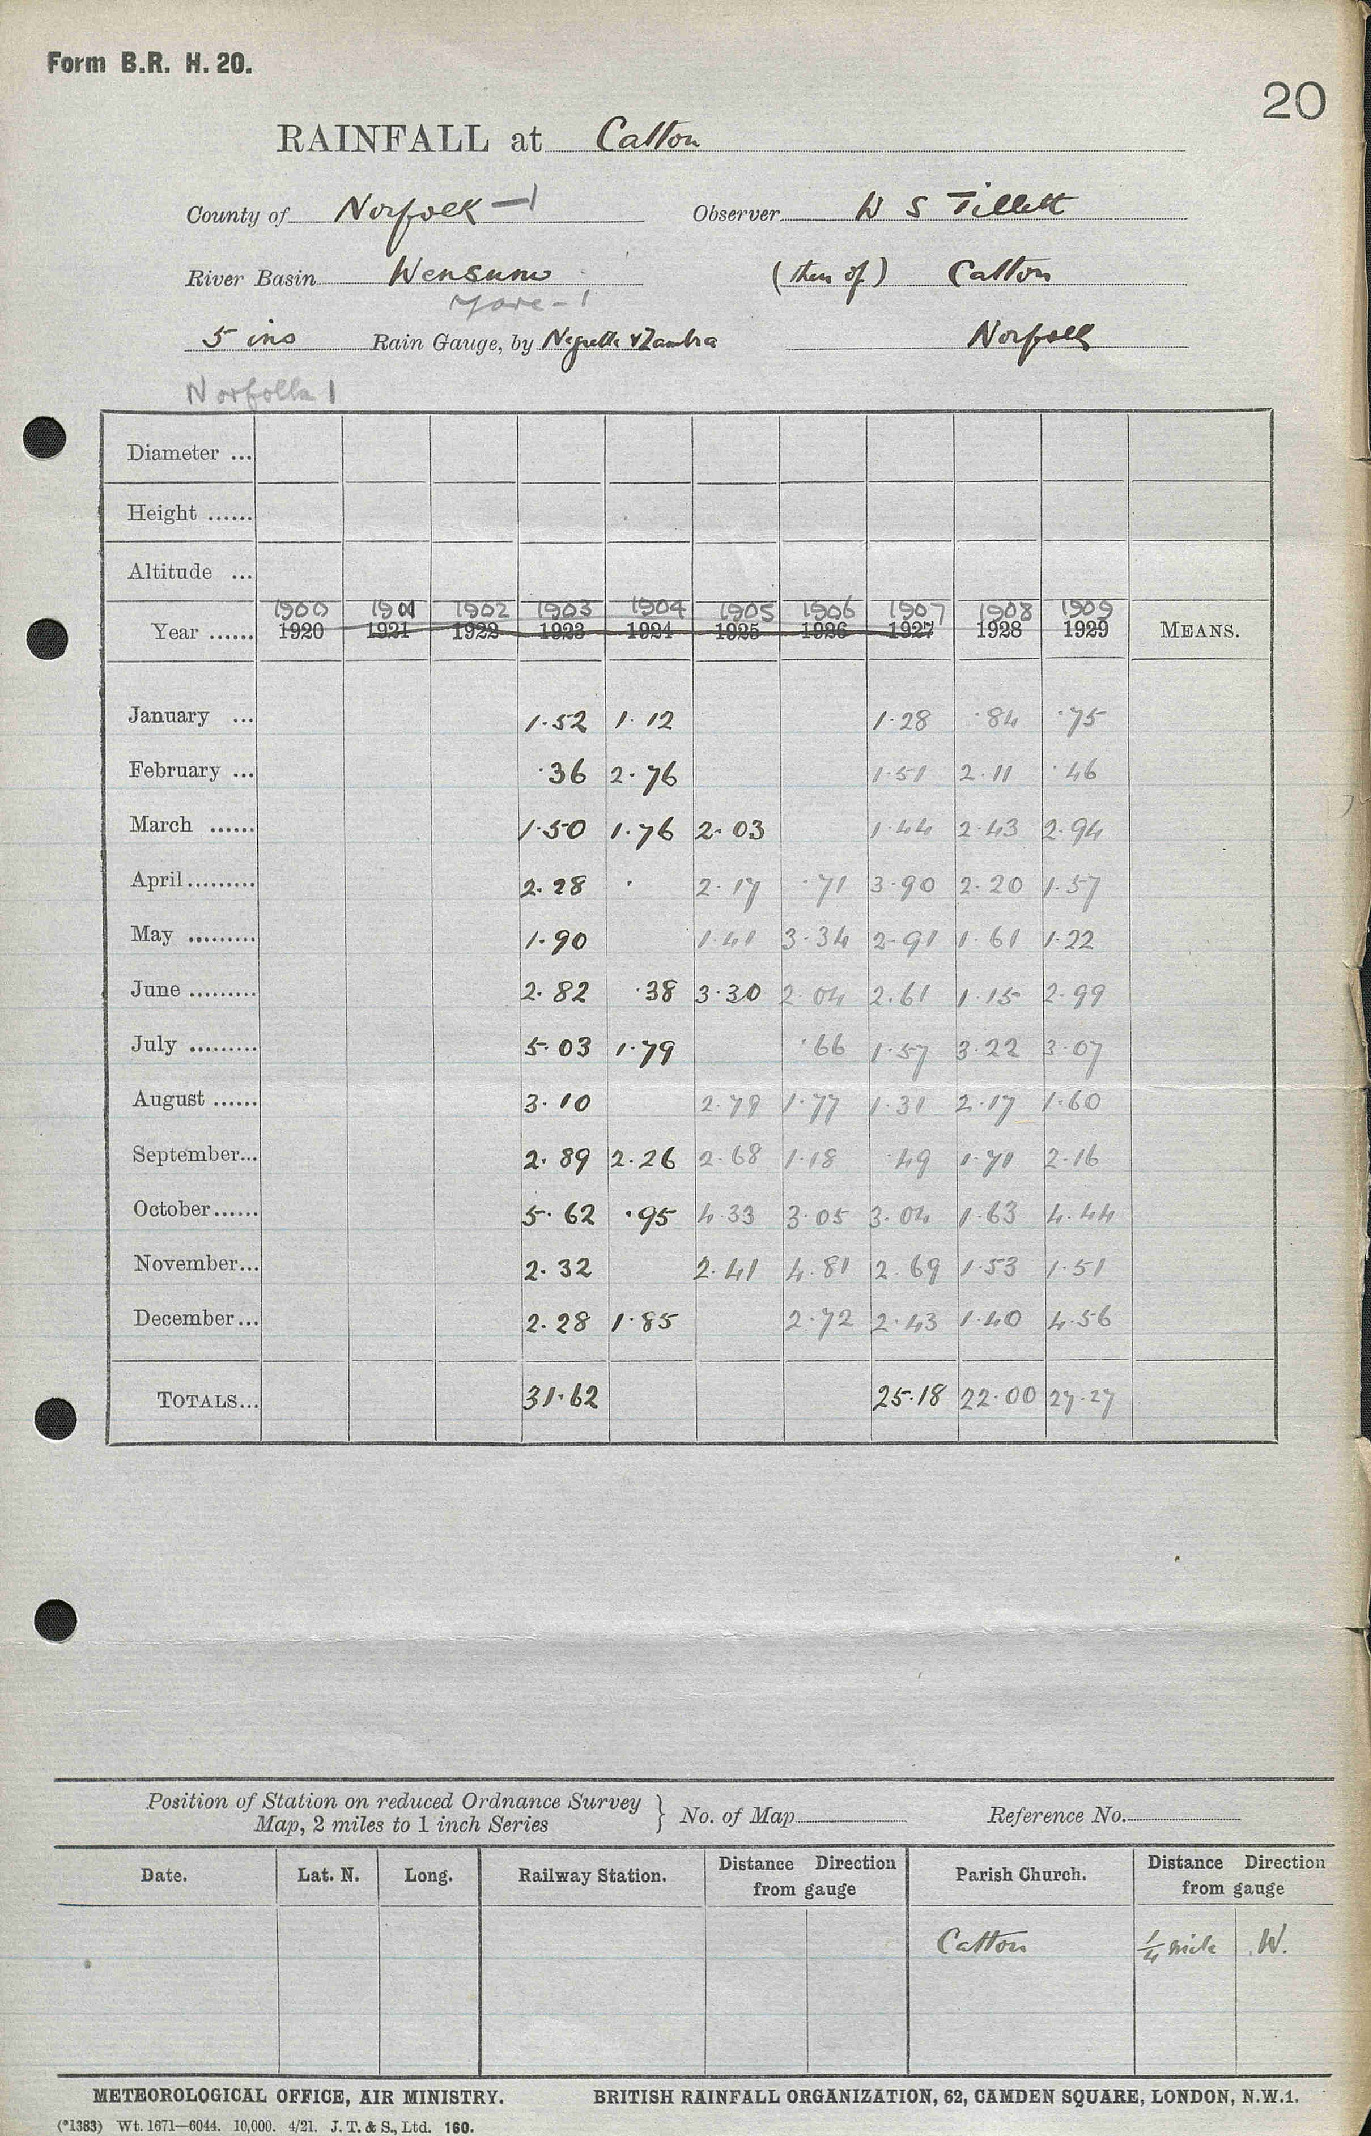 Form B.R. H. 20.
20
RAINFALL at Catton
County of Norfolk – 1 Observer W S Tillett
River Basin Wensum (then of) Catton
Yare – 1
5 ins Rain Gauge, by Negretti & Zambra Norfolk
Norfolk 1
Diameter ...
Height ......
Altitude ...
1900 1901 1902 1903 1904 1905 1906 1907 1908 1909
Year ...... 1920 1921 1922 1923 1924 1925 1926 1927 1928 1929 MEANS.
January ... 1.52 1.12 1.28 .84 .75
February ... .36 2.76 1.51 2.11 .46
March ...... 1.50 1.76 2.03 1.44 2.43 2.94
April......... 2.28 . 2.17 .71 3.90 2.20 1.57
May ......... 1.90 1.41 3.34 2.91 1.61 1.22
June ......... 2.82 .38 3.30 2.04 2.61 1.15 2.99
July ......... 5.03 1.79 .66 1.57 3.22 3.07
August ...... 3.10 2.79 1.77 1.31 2.17 1.60
September... 2.89 2.26 2.68 1.18 .49 1.71 2.16
October...... 5.62 .95 4.33 3.05 3.04 1.63 4.44
November... 2.32 2.41 4.81 2.69 1.53 1.51
December... 2.28 1.85 2.72 2.43 1.40 4.56
TOTALS... 31.62 25.18 22.00 27.27
Position of Station on reduced Ordnance Survey
Map, 2 miles to 1 inch Series } No. of Map Reference No.
Date. Lat. N. Long. Railway Station. Distance Direction from gauge Parish Church. Distance Direction from gauge
Catton ¼ mile W.
METEOROLOGICAL OFFICE, AIR MINISTRY. BRITISH RAINFALL ORGANIZATION, 62, CAMDEN SQUARE, LONDON, N.W.1.
(*1383) Wt. 1671—6044. 10,000. 4/21. J. T. & S., Ltd. 160.